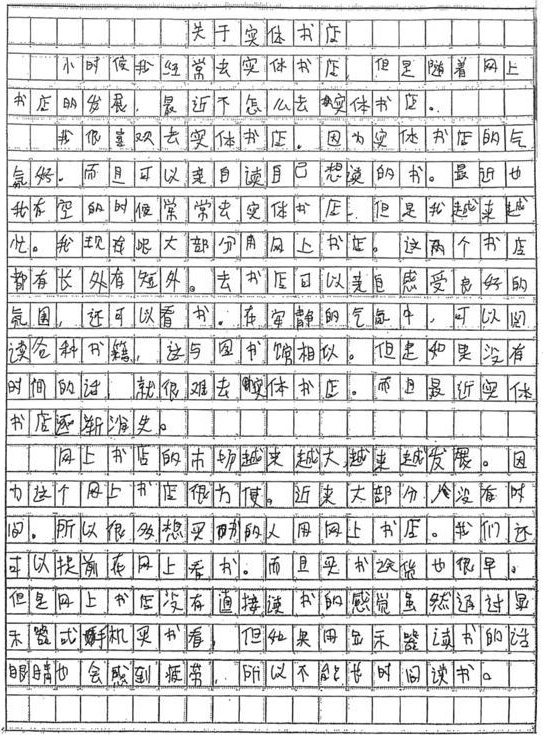 关于实体书店
小时候我经常去实体书店，但是随着网上
书店的发展，最近不怎么去实体书店。
我很喜欢去实体书店。因为实体书店的气
氛好。而且可以亲自读自己想读的书。最近也
我在空的时候常常去实体书店，但是我越来越
忙。我现在眼大部分用网上书店。这两个书店
都有长处有短处。去书店可以亲自感受良好的
氛围，还可以看书。在安静的气氛中，可以阅
读各种书籍，这与图书馆相似。但是如果没有
时间的话，就很难去实体书店。而且最近实体
书店逐渐消失。
网上书店的市场越来越大，越来越发展。因
为这个网上书店很方便。近来大部分人没有时
间。所以很多想买书的人用网上书店。我们还
可以提前在网上看书。而且买书送货也很早。
但是网上书店没有直接读书的感觉虽然通过显
示器式手机买书看，但如果用显示器读书的话
眼睛也会感到疲劳，所以不能长时间读书。